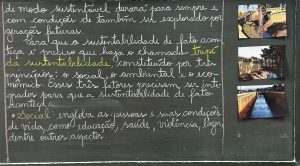 de modo sustentável durará para sempre
com condições de também ser explorado por
gerações futuras.
Para que a sustentabilidade de fato acon-
teça é preciso que haja o chamado tripé
da sustentabilidade, constituído por três
princípios: o social, o ambiental e o eco-
nômico. Esses três fatores precisam ser inte-
grados para que a sustentabilidade de fato
aconteça.
• Social: engloba as pessoas e suas condições
de vida, como educação, saúde, violência, lazer,
dentre outros aspectos.